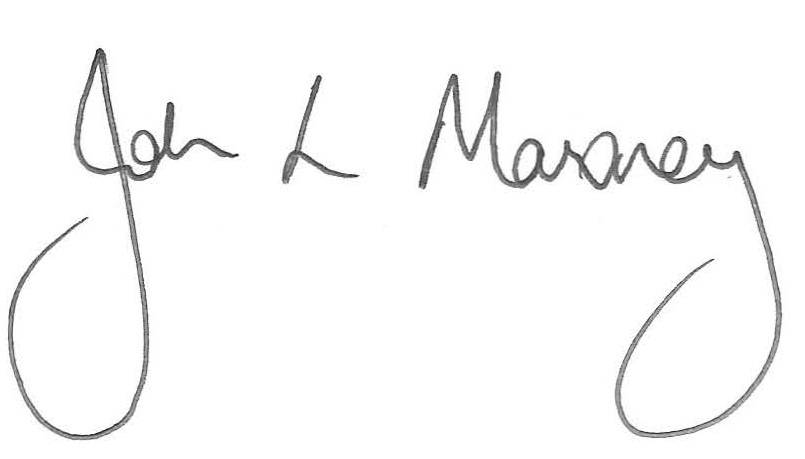 John L Masoney